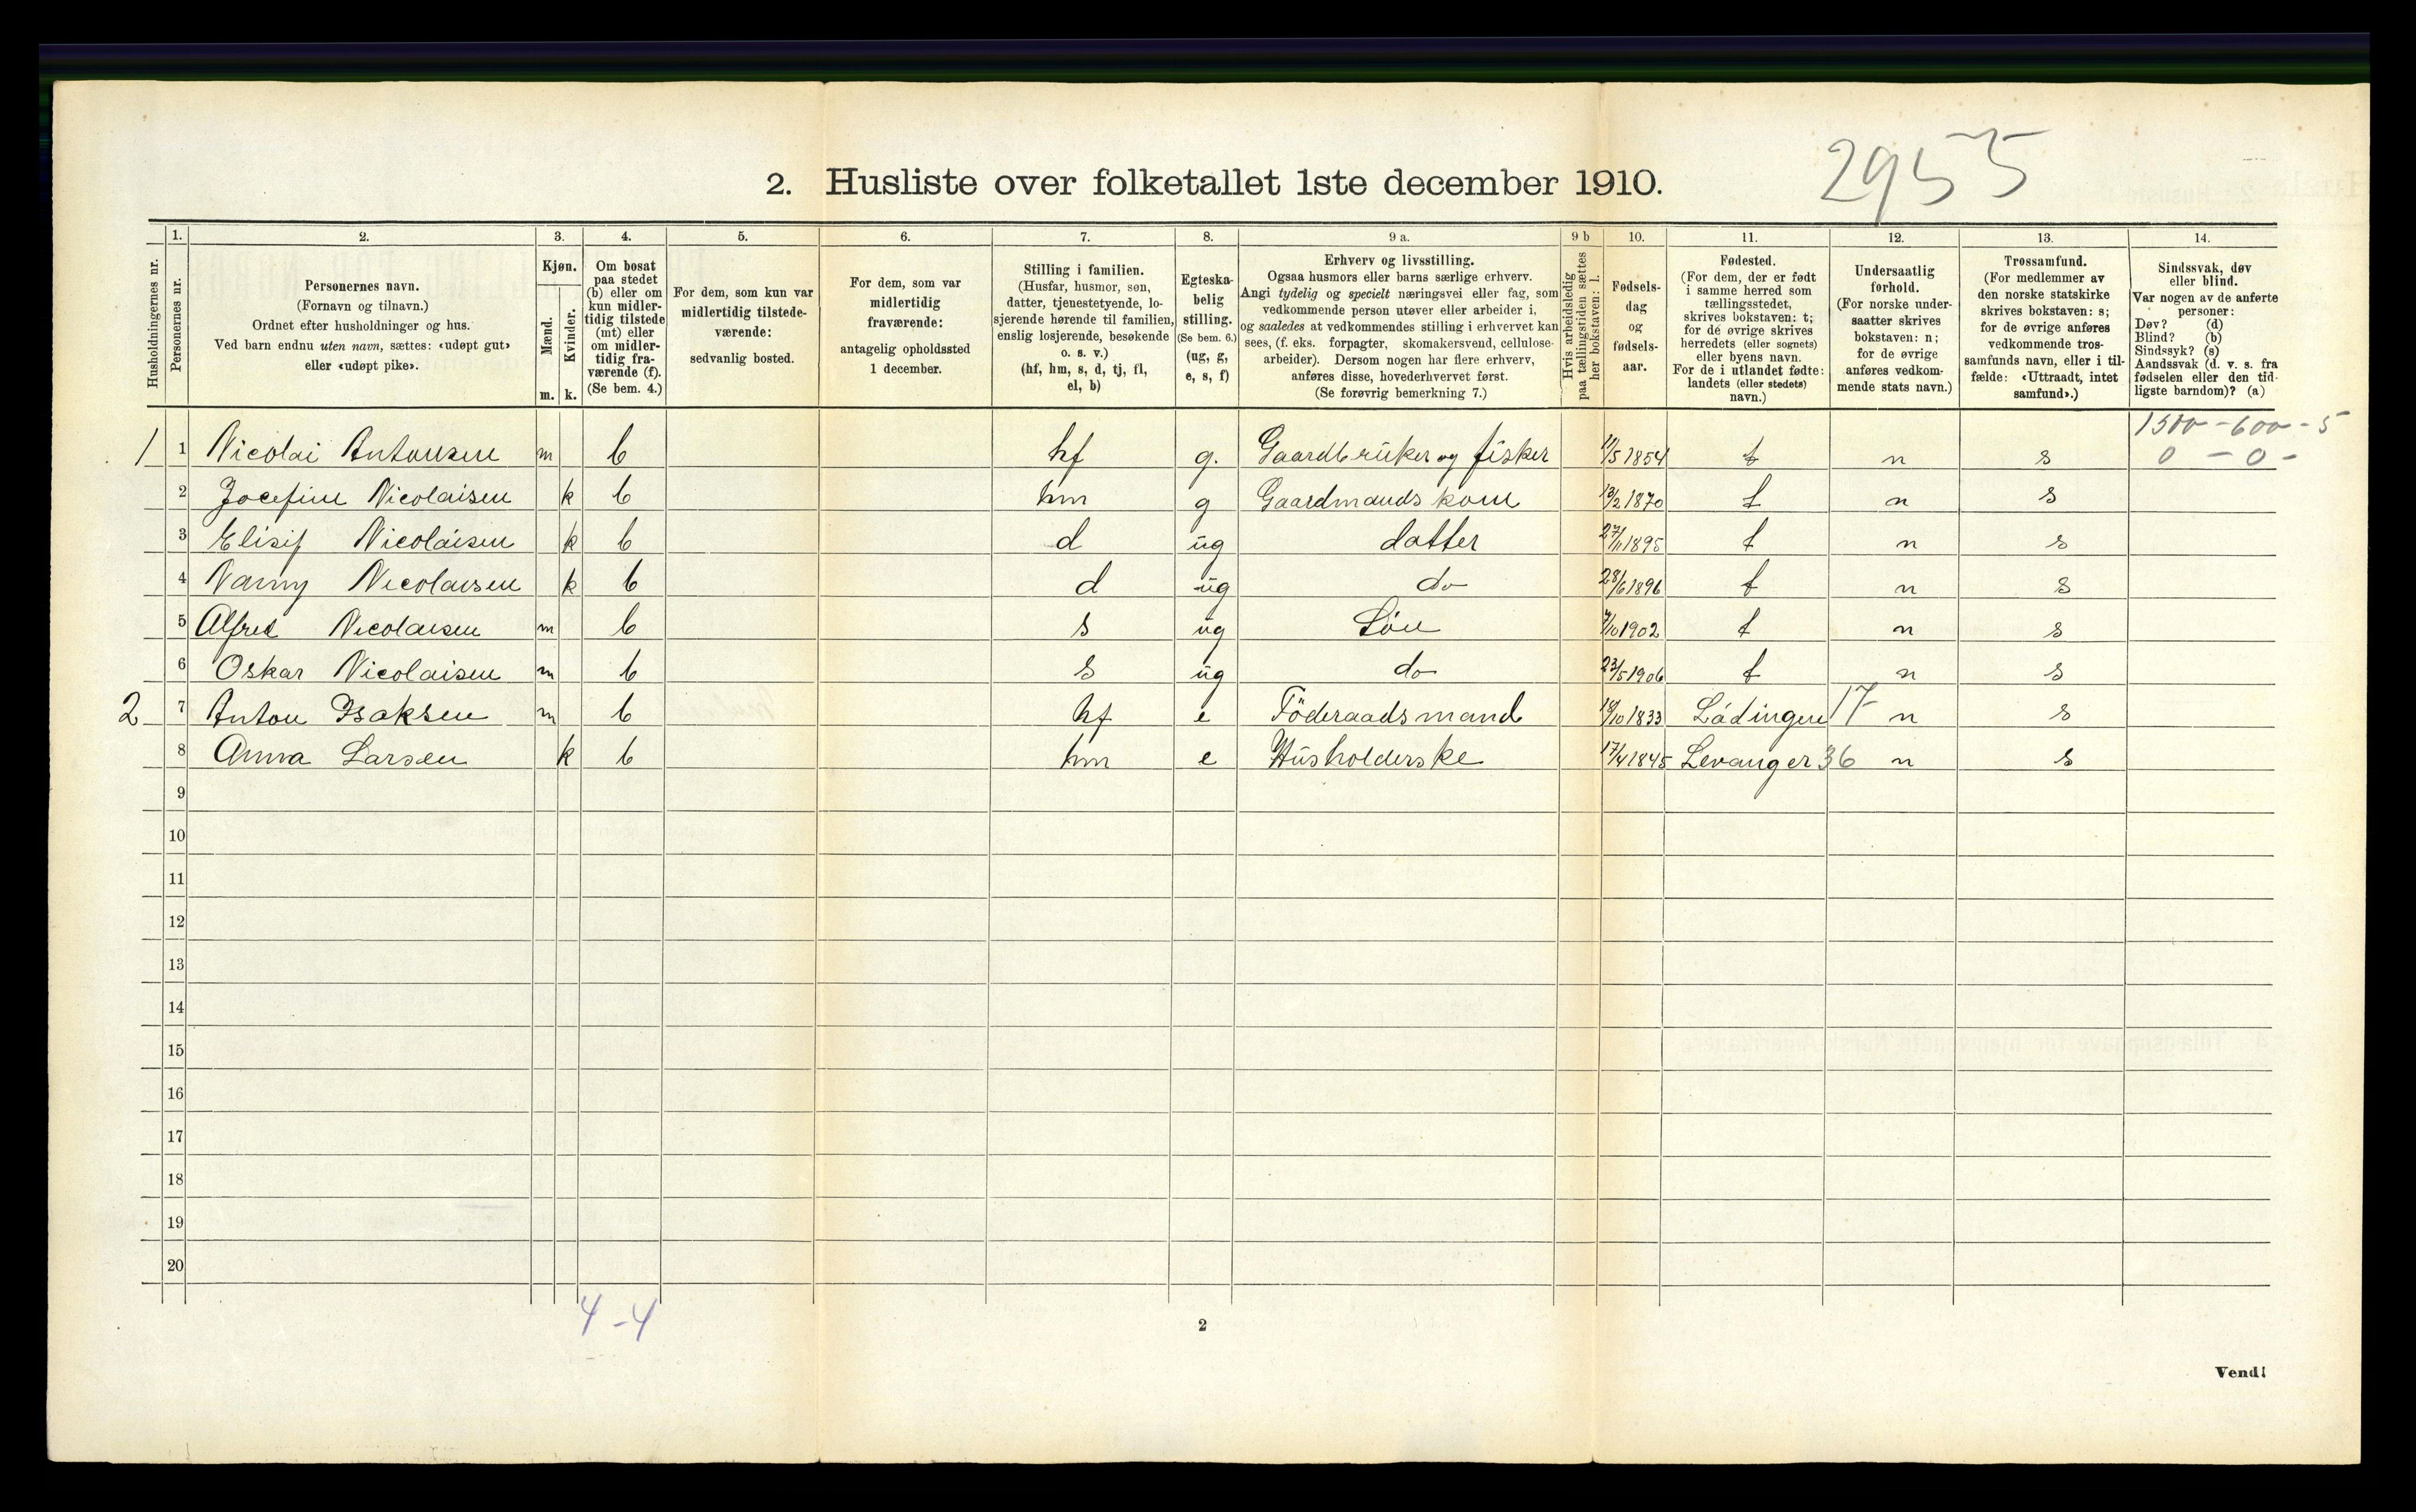 2955
2. Husliste over folketallet 1ste december 1910.
Husholdningernes nr.
1.
Personernes nr.
2.
Personernes navn.
(Fornavn og tilnavn.)
Ordnet efter husholdninger og hus.
Ved barn endnu uten navn, sættes: «udøpt gut»
eller «udøpt pike».
3.
Kjøn.
Mænd.
Kvinder.
m. k.
4.
Om bosat
paa stedet
(b) eller om
kun midler-
tidig tilstede
(mt) eller
om midler-
tidig fra-
værende (f).
(Se bem. 4.)
5.
For dem, som kun var
midlertidig tilstede-
værende:
sedvanlig bosted.
6.
For dem, som var
midlertidig
fraværende:
antagelig opholdssted
1 december.
7.
Stilling i familien.
(Husfar, husmor, søn,
datter, tjenestetyende, lo-
sjerende hørende til familien,
enslig losjerende, besøkende
o. s. v.)
(hf, hm, s, d, tj, fl,
el, b)
8.
Egteska-
belig
stilling.
(Se bem. 6.)
(ug, g,
e, s, f)
9 a.
Erhverv og livsstilling.
Ogsaa husmors eller barns særlige erhverv.
Angi tydelig og specielt næringsvei eller fag, som
vedkommende person utøver eller arbeider i,
og saaledes at vedkommendes stilling i erhvervet kan
sees, (f. eks. forpagter, skomakersvend, cellulose-
arbeider). Dersom nogen har flere erhverv,
anføres disse, hovederhvervet først.
(Se forøvrig bemerkning 7.)
9 b
Hvis arbeidsledig
paa tællingstiden sættes
her bokstaven: l.
10.
Fødsels-
dag
og
fødsels-
aar.
11.
Fødested.
(For dem, der er født
i samme herred som
tællingsstedet,
skrives bokstaven: t;
for de øvrige skrives
herredets (eller sognets)
eller byens navn.
For de i utlandet fødte:
landets (eller stedets)
navn.)
12.
Undersaatlig
forhold.
(For norske under-
saatter skrives
bokstaven: n;
for de øvrige
anføres vedkom-
mende stats navn.)
13.
Trossamfund.
(For medlemmer av
den norske statskirke
skrives bokstaven: s;
for de øvrige anføres
vedkommende tros-
samfunds navn, eller i til-
fælde: «Uttraadt, intet
samfund».)
14.
Sindssvak, døv
eller blind.
Var nogen av de anførte
personer:
Døv? (d)
Blind? (b)
Sindssyk? (s)
Aandssvak (d. v. s. fra
fødselen eller den tid-
ligste barndom)? (a)
1500 - 600 - 5
1 1 Nicolai Antonsen m b hf g. Gaardbruker og fisker 11/5 1854 t n s 0 - 0 -
2 Josefine Nicolaisen k b hm g Gaardmands kone 13/2 1870 t n s
3 Elisif Nicolaisen k b d ug datter 27/11 1895 t n s
4 Nanny Nicolaisen k b d ug do 28/6 1896 t n s
5 Alfred Nicolaisen m b s ug Sön 7/10 1902 t n s
6 Oskar Nicolaisen m b s ug do 23/5 1906 t n s
2 7 Anton Isaksen m b hf e Föderaadsmand 18/10 1833 Lådingen 17 n s
8 Anna Larsen k b hm e Husholderske 17/4 1845 Levanger 36 n s
9
10
11
12
13
14
15
16
17
18
19
20
4-4
2
Vend!